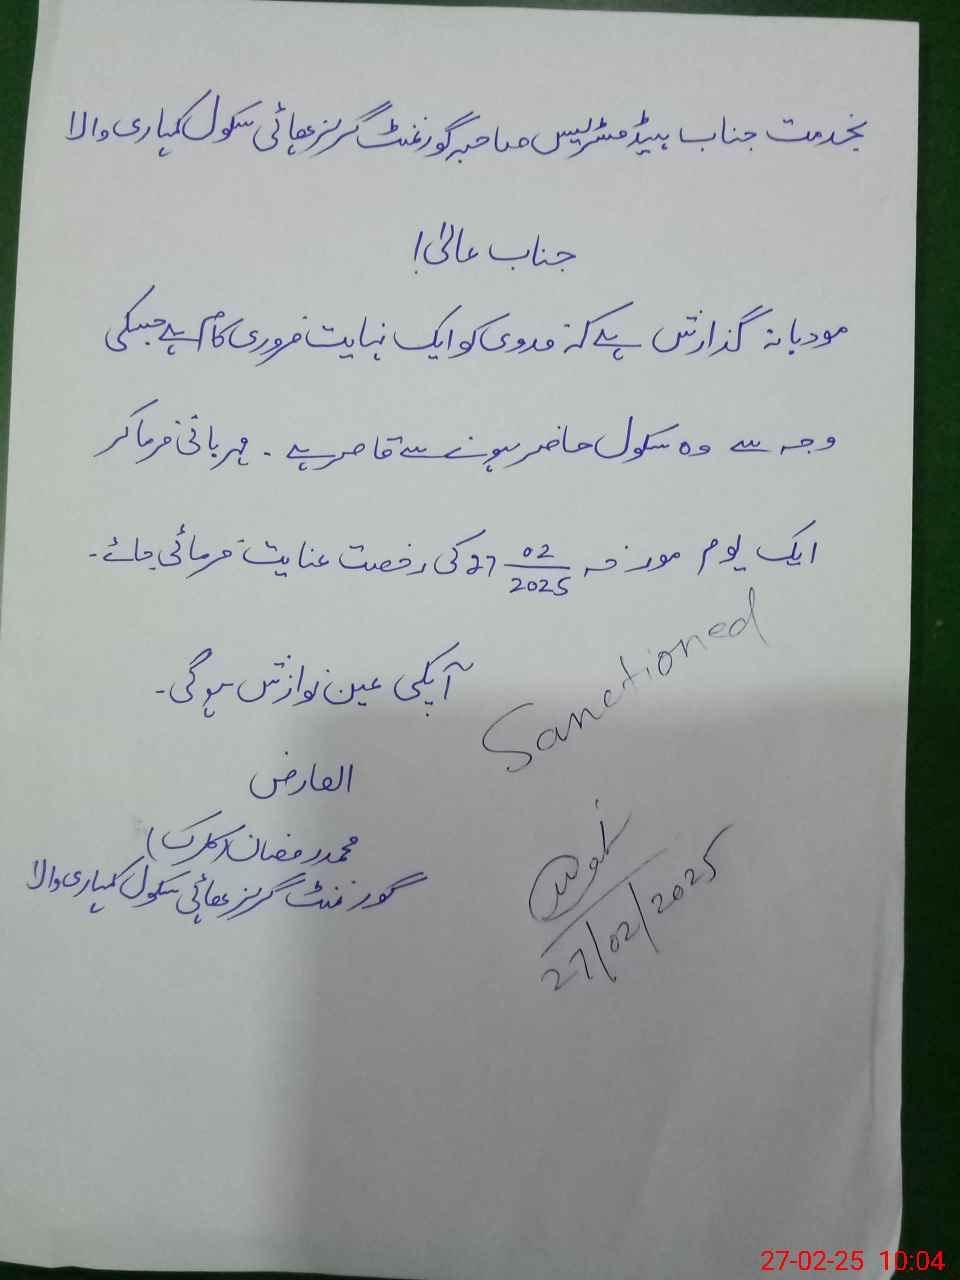 بخدمت جناب ہیڈ مسٹریس صاحبہ گورنمنٹ گرلز ہائی سکول کہاری والا
جناب عالیٰ!
مودبانہ گذارش ہے کہ فدوی کو ایک نہایت ضروری کام ہے جسکی
وجہ سے وہ سکول حاضر ہونے سے قاصر ہے ۔ مہربانی فرما کر
ایک یوم مورخہ 27 02/2025 کی رخصت عنایت فرمائی جائے۔
آپکی عین نوازش ہوگی۔
Sanctioned
العارض
محمد رمضان (کلرک)
گورنمنٹ گرلز ہائی سکول کہاری والا
27/02/2025
27-02-25 10:04